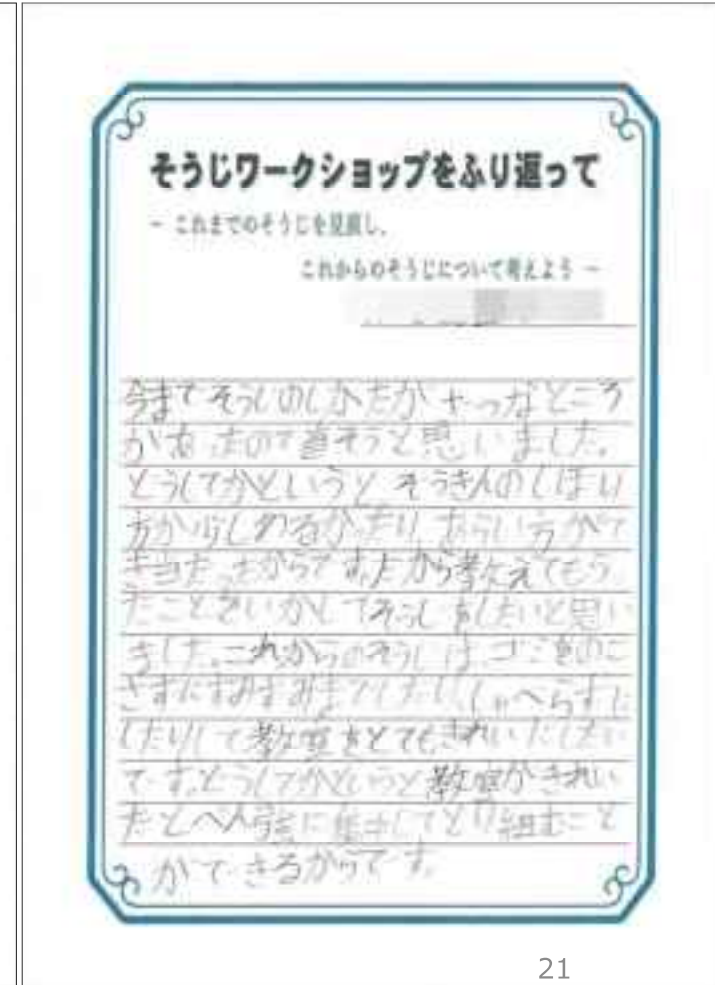 そうじワークショップをふり返って
～ これまでのそうじを見直し、
これからのそうじについて考えよう ～
今までそうじのしかたが なところ
があったので直そうと思いました。
どうしてかというと、ぞうきんのしぼり
方が少しゆるかったり、あらい方がて
きとうだったからです。だから教えてもらっ
たことをいかしてそうじをしたいと思い
ました。これからのそうじは、ゴミをのこ
さずにすみずみまでしたり、しゃべらずに
したりして教室をとてもきれいにしたい
です。どうしてかというと教室がきれい
だとべん強に集中してとり組むこと
ができるからです。
21